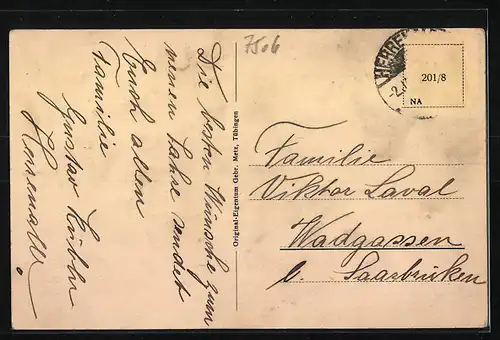 Die besten Wünsche zum
neuen Jahre sendet
Euch allen
Familie
Gustav Kübler
Herrenalb.
7506
Original-Eigentum Gebr. Metz, Tübingen
HERRENALB
201/8
NA
Familie
Viktor Laval
Wadgassen
b. Saarbrüken